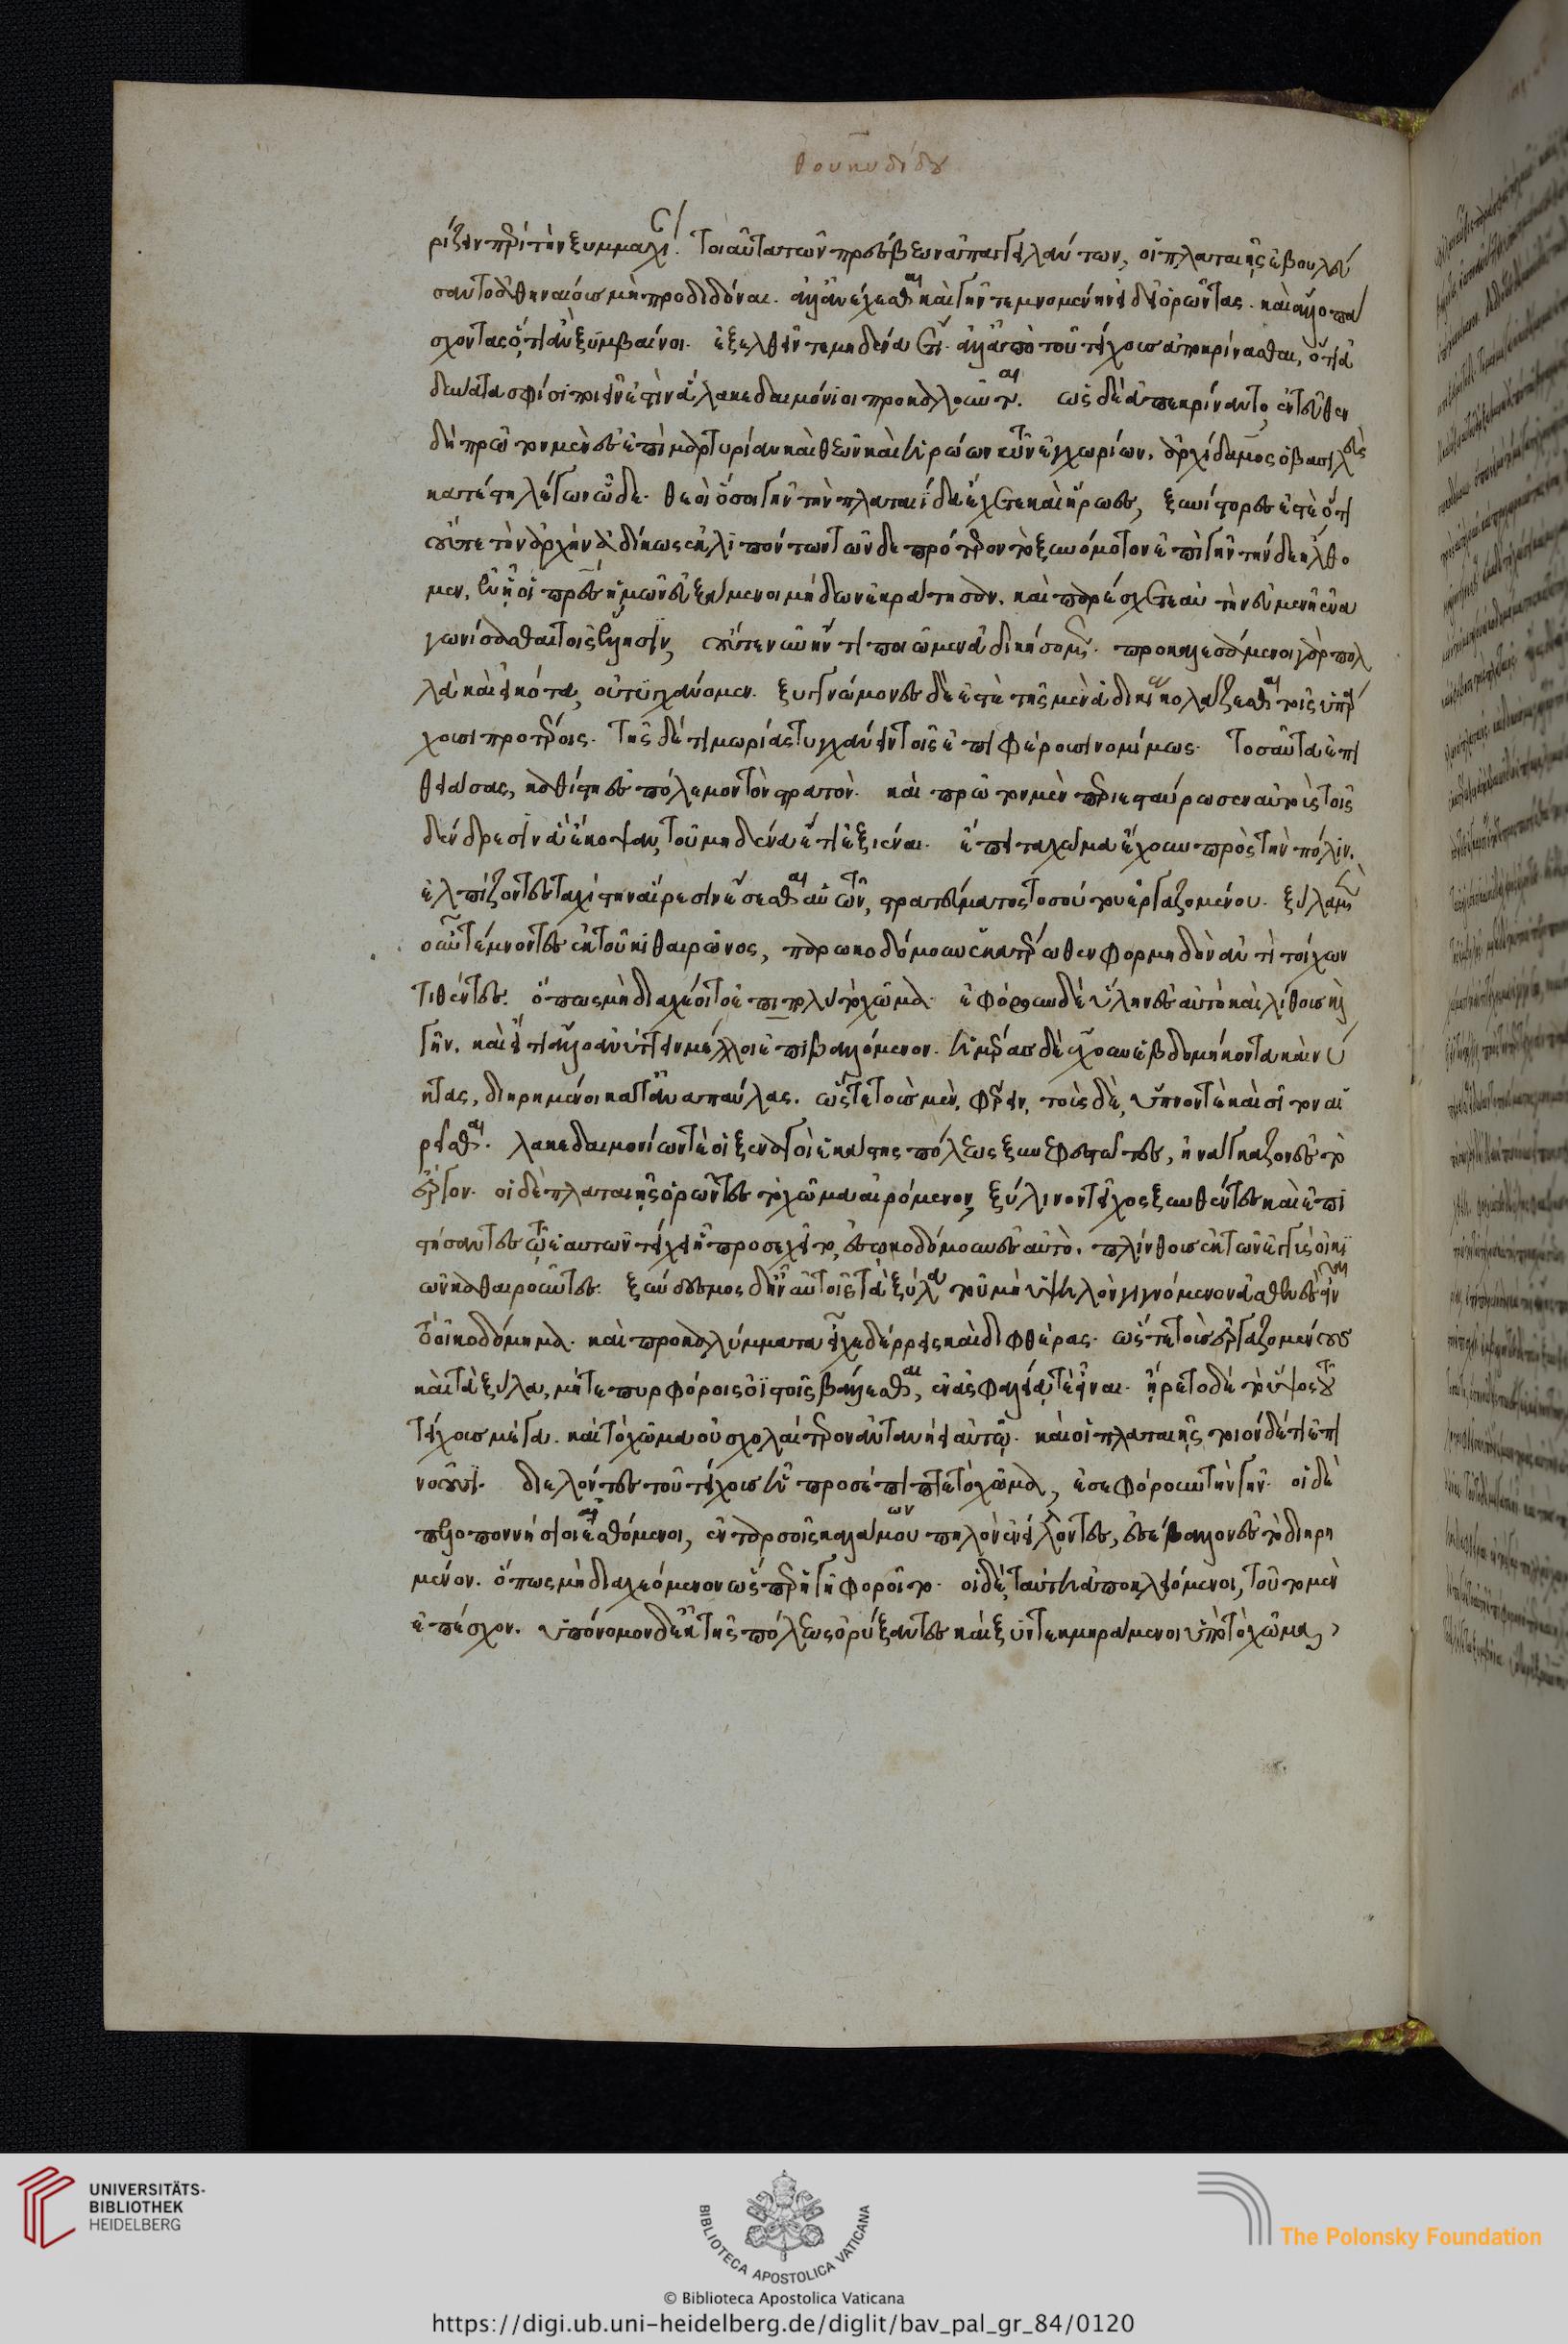 θουκυδίδου
ρίζειν περὶ τὴν ξυμμαχί. τοιαῦτα τῶν πρέσβεων ἀπαγγειλάντων, οἱ πλαταιῆς ἐβουλεύ
σαντο ἀθηναίοις μὴ προδιδόναι. ἀλλ' ἀνέχεσθαι καὶ γῆν τεμνομένην εἰ δεῖ ὁρῶντας. καὶ ἄλλο πά
σχοντας ὅ,τι ἂν ξυμβαίνοι. ἐξελθεῖν τε μηδένα ἔτι. ἀλλ' ἀπὸ τοῦ τείχους ἀποκρίνασθαι, ὅτι ἀ
δύνατα σφίσι ποιεῖν ἐστὶν ἃ λακεδαιμόνιοι προκαλοῦνται. ὡς δὲ ἀπεκρίναντο, ἐντεῦθεν
δὴ πρῶτον μὲν ἐς ἐπιμαρτυρίαν καὶ θεῶν καὶ ἡρώων τῶν ἐγχωρίων, ἀρχίδαμος ὁ βασιλεὺς
κατέστη λέγων ὧδε. θεοὶ ὅσοι γῆν τὴν πλαταιίδα ἔχετε καὶ ἥρωες, ξυνίστορες ἐστὲ ὅτι
οὔτε τὴν ἀρχὴν ἀδίκως ἐκλιπόντων τῶνδε πρότερον τὸ ξυνόμοτον ἐπὶ γῆν τήνδε ἤλθο
μεν, ἐν ᾗ οἱ πατέρες ἡμῶν εὐξάμενοι μήδων ἐκράτησαν. καὶ παρέσχετε αὐτὴν εὐμενῆ ἐνα
γωνίσασθαι τοῖς ἕλλησιν, οὔτε νῦν ἤν τι ποιῶμεν ἀδικήσομεν. προκαλεσάμενοι γὰρ πολ
λὰ καὶ εἰκότα, οὐ τυγχάνομεν. ξυγγνώμονες δὲ ἐστὲ τῆς μὲν ἀδικίας κολάζεσθαι τοῖς ὑπάρ
χουσι προτέροις. τῆς δὲ τιμωρίας τυγχάνειν τοῖς ἐπιφέρουσι νομίμως. τοσαῦτα ἐπι
θειάσας, καθίστη ἐς πόλεμον τὸν στρατόν. καὶ πρῶτον μὲν περιεσταύρωσεν αὐτοὺς τοῖς
δένδρεσιν ἃ ἔκοψαν, τοῦ μηδένα ἔτι ἐξιέναι. ἔπειτα χῶμα ἔχουν πρὸς τὴν πόλιν.
ἐλπίζοντες ταχίστην αἵρεσιν ἔσεσθαι αὐτῶν, στρατεύματος τοσούτου ἐργαζομένου. ξύλα μὲν
οὖν τέμνοντες ἐκ τοῦ κιθαιρῶνος, παρωκοδόμουν ἑκατέρωθεν φορμηδὸν ἀντὶ τοίχων
τιθέντες. ὅπως μὴ διαχέοιτο ἐπιπολὺ τὸ χῶμα. ἐφόρουν δὲ ὕλην ἐς αὐτὸ καὶ λίθους καὶ
γῆν. καὶ εἴ τι ἄλλο ἀνύτειν μέλλοι ἐπιβαλλόμενον. ἡμέρας δὲ ἔχουν ἑβδομήκοντα καὶ νύ
κτας, διῃρημένοι κατ' ἀναπαύλας. ὥστε τοὺς μὲν, φέρειν, τοὺς δὲ, ὕπνον τὲ καὶ σῖτον αἱ
ρεῖσθαι. λακεδαιμονίων τὲ οἱ ξεναγοὶ ἑκάστης πόλεως ξυνεφεστῶτες, ἠνάγκαζον ἐς τὸ
ἔργον. οἱ δὲ πλαταιῆς ὁρῶντες τὸ χῶμα αἰρόμενον, ξύλινον τεῖχος ξυνθέντες καὶ ἐπι
στήσαντες τῷ ἑαυτῶν τείχει ᾗ προσεχοῦτο, ἐσῳκοδόμουν ἐς αὐτὸ. πλίνθους ἐκ τῶν ἐγγὺς οἰκι
ῶν καθαιροῦντες. ξύνδεσμος δ' ἦν αὐτοῖς τὰ ξύλα τοῦ μὴ ὑψηλὸν γιγνόμενον ἀσθενὲς εἶναι
τὸ οἰκοδόμημα. καὶ προκαλύμματα εἶχε δέρρεις καὶ διφθέρας. ὥστε τοὺς ἐργαζομένους
καὶ τὰ ξύλα, μήτε πυρφόροις οἰστοῖς βάλλεσθαι, ἐν ἀσφαλείᾳ τὲ εἶναι. ᾔρετο δὲ τὸ ὕψος τοῦ
τείχους μέγα. καὶ τὸ χῶμα οὐ σχολαίτερον ἀντανῄει αὐτῷ. καὶ οἱ πλαταιῆς τοιόνδέ τι ἐπι
νοοῦσι. διελόντες τοῦ τείχους ᾗ προσέπιπτε τὸ χῶμα, ἐσεφόρουν τὴν γῆν. οἱ δὲ
πελοποννήσιοι αἰσθόμενοι, ἐν ταρσοῖς καλάμου πηλὸν ἐνείλοντες, ἐσέβαλλον ἐς τὸ διῃρη
μένον. ὅπως μὴ διαχεόμενον ὥσπερ ἡ γῆ φοροῖτο. οἱ δὲ, ταύτῃ ἀποκλειόμενοι, τοῦτο μὲν
ἐπέσχον. ὑπόνομον δὲ ἐκ τῆς πόλεως ὀρύξαντες καὶ ξυντεκμηράμενοι ὑπὸ τὸ χῶμα,
UNIVERSITÄTS-
BIBLIOTHEK
HEIDELBERG
BIBLIOTECA APOSTOLICA VATICANA
The Polonsky Foundation
© Biblioteca Apostolica Vaticana
https://digi.ub.uni-heidelberg.de/diglit/bav_pal_gr_84/0120